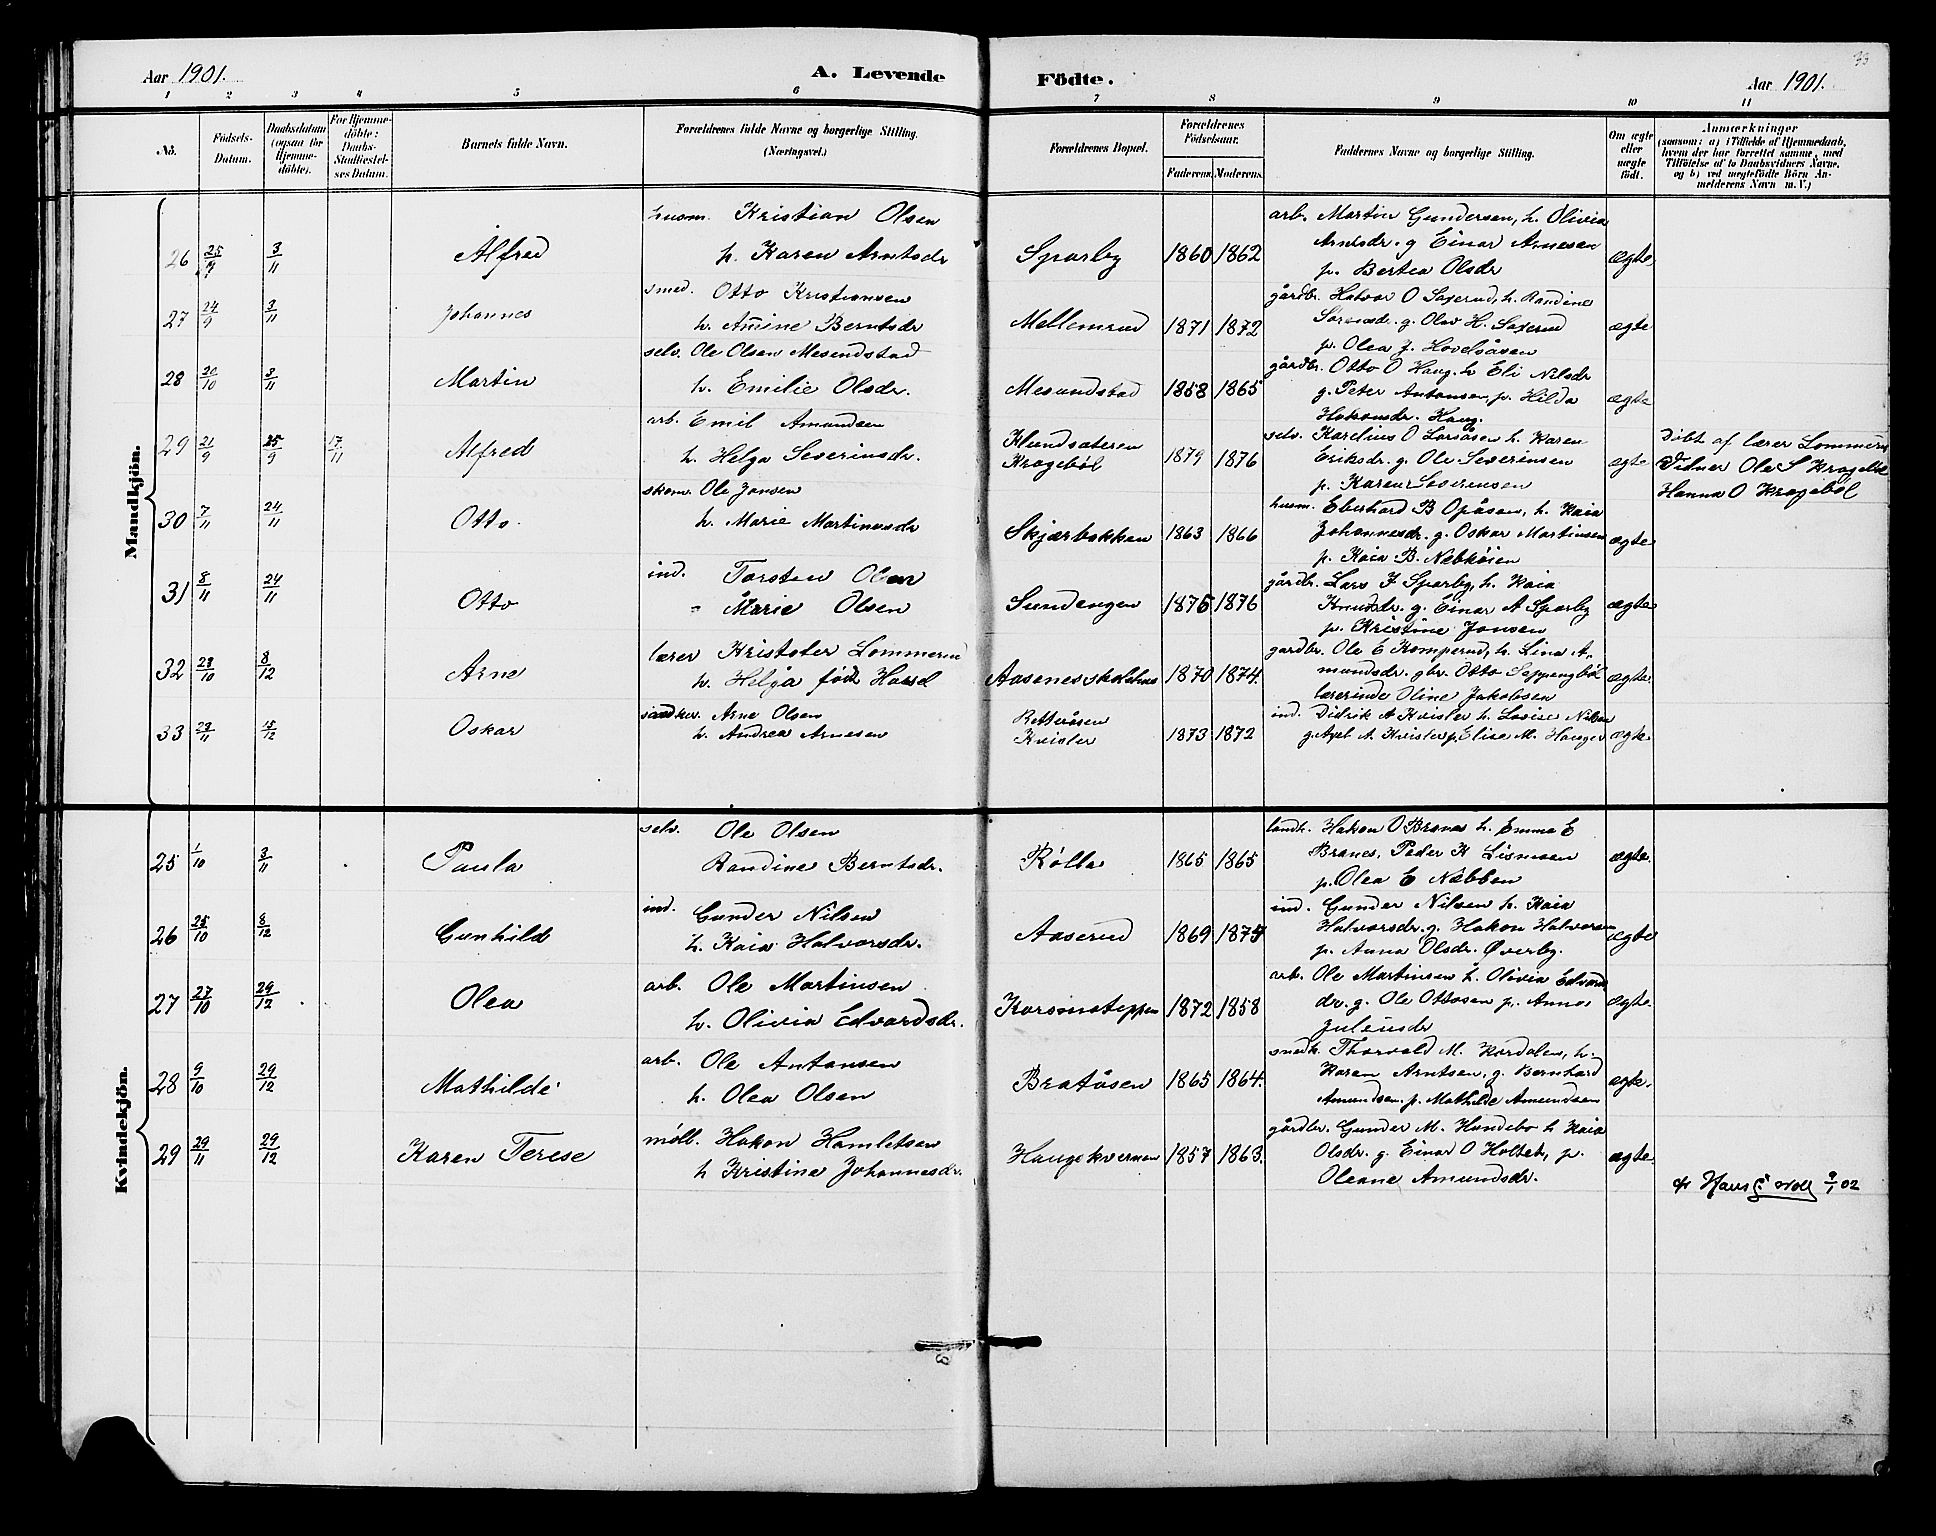 33
Aar 1901. A. Levende Födte. Aar 1901.
1 2 3 4 5 6 7 8 9 10 11
No.
Födsels-
Datum.
Daabsdatum
(ogsaa for
Hjemme-
döbte).
For Hjemme-
döbte:
Daabs-
Stadfæstel-
ses Datum.
Barnets fulde Navn.
Forældrenes fulde Navne og borgerlige Stilling.
(Næringsvei.)
Forældrenes Bopæl.
Forældrenes
Födselsaar.
Faderens. Moderens.
Faddernes Navne og borgerlige Stilling.
Om ægte
eller
uægte
födt.
Anmærkninger
(saasom: a) i Tilfælde af Hjemmedaab,
hvem der har forrettet samme, med
Tilföielse af to Daabsvidners Navne,
og b) ved uegtefödte Börn An-
melderens Navn m. V.)
Mandkjön.
26 25/9 3/11 Alfred
husm. Kristian Olsen
h. Karen Arntsdr
Sparby 1860 1862
arb. Martin Gundersen, h. Olivia
Arntsdr. g Einar Arnesen
p. Bertea Olsdr
ægte
27 24/9 3/11 Johannes
smed. Otto Kristiansen
h. Amine Berntsdr
Mellemrud 1871 1872
gårdbr. Halvor O Saxerud, h. Randine
g. Olav H. Saxerud
p. Olea J. Hovelsåsen
ægte
28 20/10 3/11 Martin
selv. Ole Olsen Mesundstad
h. Emilie Olsdr.
Mesundstad 1858 1865
gårdbr. Otto O Haug. h Eli Nilsdr
g. Peter Antonsen, p. Hilda
Hakonsdr. Haug.
ægte
29 21/9 25/9 17/11 Alfred
arb. Emil Amundsen
h. Helga Severinsdr.
Klundsæteren
Kragebøl
1879 1876
selv. Karelius O Larsåsen h. Karen
Eriksdr. g. Ole Severinsen
p. Karen Severensen
ægte
Døbt af lærer Lommerud
Vidner Ole S Kragebøl
Hanna O Kragebøl
30 7/11 24/11 Otto.
skom. Ole Jansen
h. Marie Martinusdr
Skjærbakken 1863 1866
husm. Eberhard B Opåsen, h. Kaia
Johannesdr. g. Oskar Martinsen
p. Kaia B. Nebkøien
ægte
31 8/11 24/11 Otto
ind. Torsten Olsen
" Marie Olsen
Sundengen 1875 1876
gårdbr. Lars J Sparby, h. Kaia
Knudsdr. g. Einar A Sparby
p. Kristine Jansen
ægte
32 28/10 8/12 Arne
lærer Kristofer Lommerud
h. Helga født Horsel
Aasenes skolehus 1870 1874.
gardbr. Ole E Komperud, h. Lina A-
mundsdr. gbr. Otto Seppengbøl
lærerinde Oline Jakobsen
ægte.
33 29/11 15/12 Oskar
Arne Olsen
h. Andrea Arnesen
Rettråsen
Kvisler
1873 1872
ind. Didrik A Kvisler h. Lovise Nilsen
g. Axel A. Kvisler p. Elise M. Hauger
ægte.
Kvindekjön.
25 1/10 3/11 Paula
selv. Ole Olsen
Randine Berntsdr.
Rølla 1865 1865
landh. Hakon O Branes h. Emma E
Branes, Peder K Lismoen
p. Olea E Næbben
ægte.
26 25/10 8/12 Gunhild
ind. Gunder Nilsen
h. Kaia Halvorsdr.
Aaserud 1869 1874
ind. Gunder Nilsen h. Kaia
Halvorsdr. g. Hakon Halvorsen
p. Anna Olsdr. Øverby.
ægte
27 27/10 29/12 Olea
arb. Ole Martinsen
h. Olivia Edvardsdr.
Korsmoteppen 1872 1858
arb. Ole Martinsen h. Olivia Edvards
dr. g. Ole Ottosen p. Anna
Juleiusdr
ægte.
28 9/10 29/12 Mathilde
arb. Ole Antonsen
h. Olea Olsen
Bratåsen 1865 1864.
snedk. Thorvald M. Kordalen, h.
Karen Arntsen, g. Bernhard
Amundsen. p. Mathilde Amundsen
ægte.
29 29/11 29/12 Karen Terese
møll. Hakon Hamletsen
h Kristine Johannesdr.
Haugekvernen 1857 1863.
gårdbr. Gunder M. Hundebo h Kaia
Olsdr. g. Einar O Holtet, p.
Oleane Amundsdr.
ægte.
9/1 02